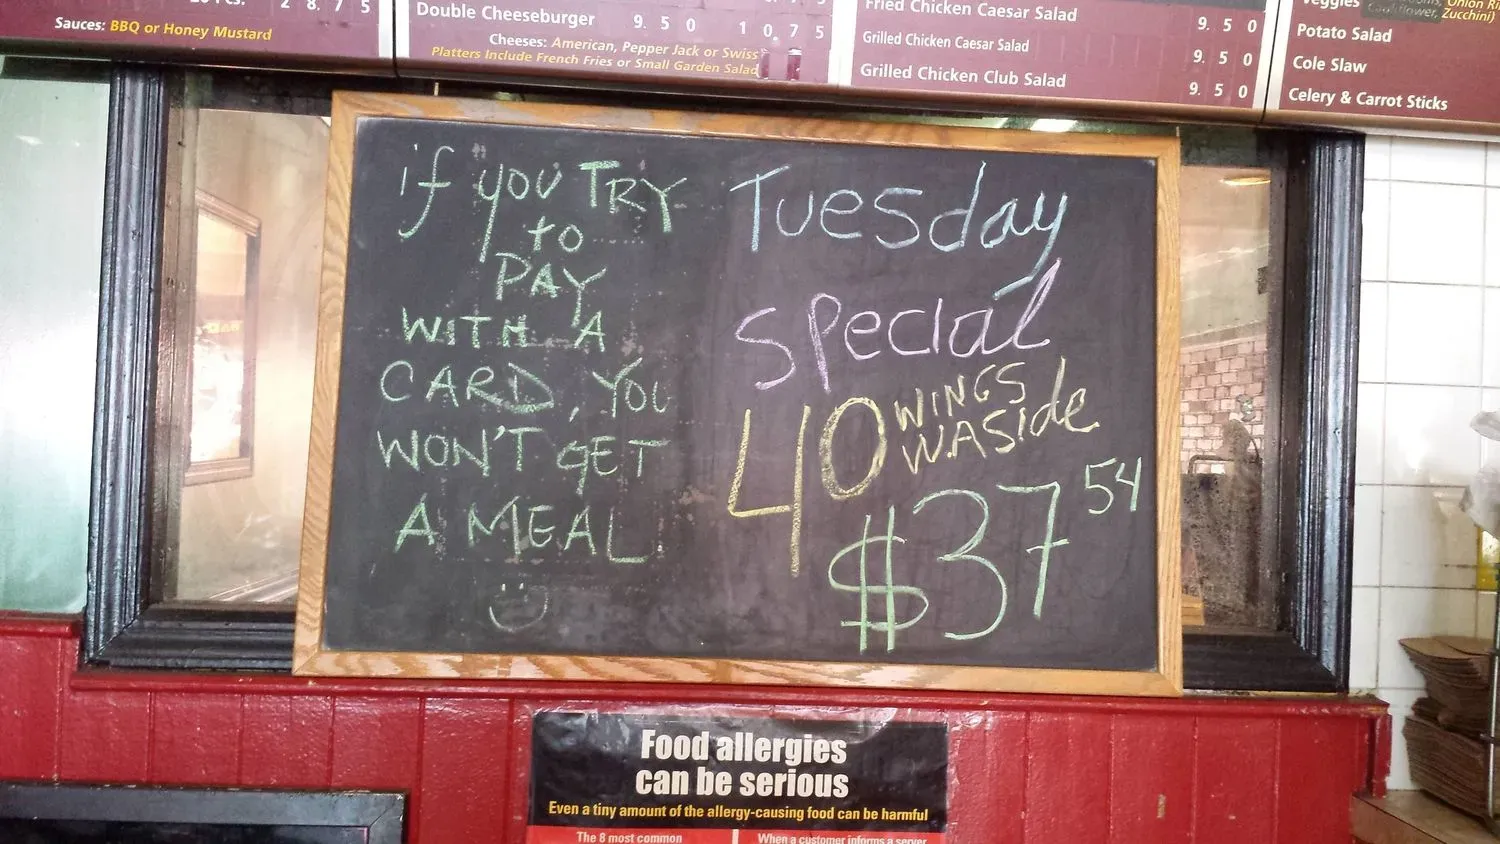 28.75
Sauces: BBQ or Honey Mustard
Double Cheeseburger 9.50 10.75
Cheeses: American, Pepper Jack or Swiss
Platters Include French Fries or Small Garden Salad
Fried Chicken Caesar Salad 9.50
Grilled Chicken Caesar Salad 9.50
Grilled Chicken Club Salad 9.50
Veggies
Cauliflower, Zucchini)
Potato Salad
Cole Slaw
Celery & Carrot Sticks
if you TRY
to
PAY
WITH A
CARD, YOU
WON'T GET
A MEAL
Tuesday
Special
40 WINGS
WASide
$37 54
Food allergies
can be serious
Even a tiny amount of the allergy-causing food can be harmful
The 8 most common
When a customer informs a server